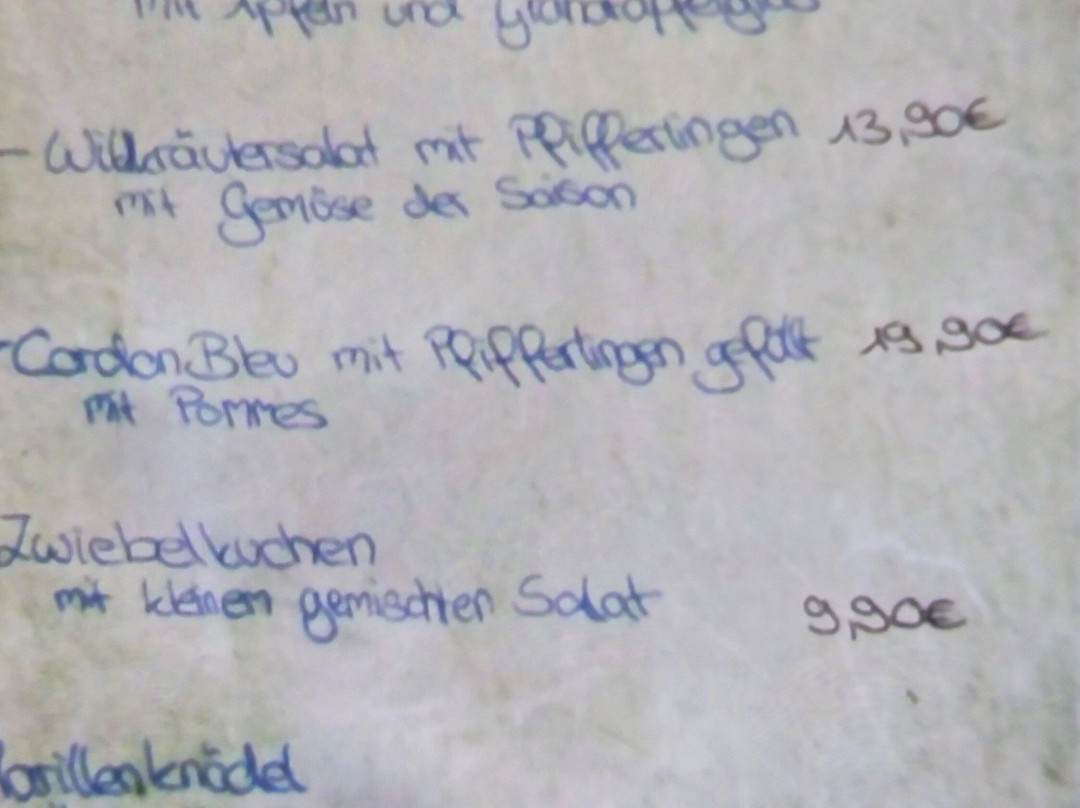 mit Äpfeln und
- Wildkräutersalat mit Pfifferlingen 13,90€
mit Gemüse der Saison
- Cordon Bleu mit Pfifferlingen gefüllt 19,90€
mit Pommes
Zwiebelkuchen
mit kleinem gemischten Salat 9,90€
Marillenknödel